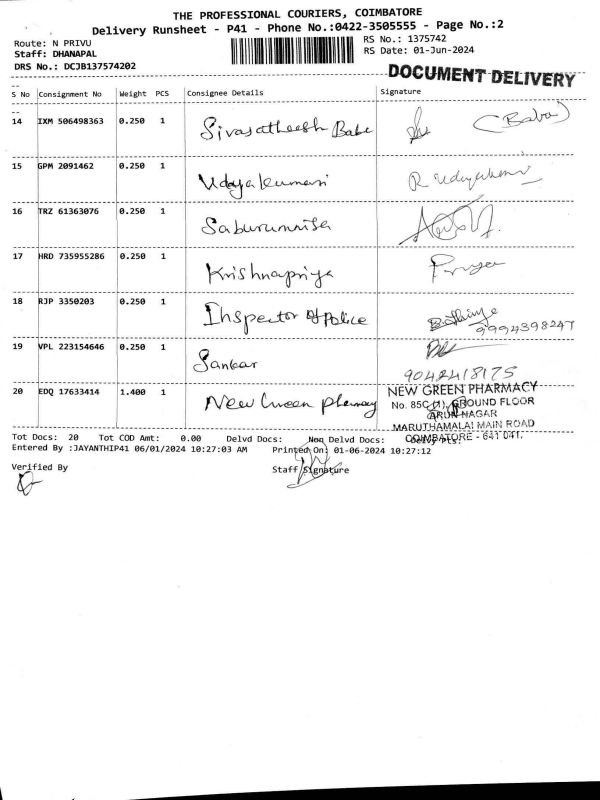 THE PROFESSIONAL COURIERS, COIMBATORE
Delivery Runsheet - P41 - Phone No.:0422-3505555 - Page No.:2
Route: N PRIVU
Staff: DHANAPAL
DRS No.: DCJB137574202
RS No.: 1375742
RS Date: 01-Jun-2024
DOCUMENT DELIVERY
S No Consignment No Weight PCS Consignee Details Signature
14 IXM 506498363 0.250 1 Sivasatheesh Babu (Babu)
15 GPM 2091462 0.250 1 Udayakumari R Udayakumari
16 TRZ 61363076 0.250 1 Saburunnisa
17 HRD 735955286 0.250 1 Krishnapriya Priya
18 RJP 3350203 0.250 1 Inspector of Police
9994398247
19 VPL 223154646 0.250 1 Sankar
9042418175
20 EDQ 17633414 1.400 1 New Green Pharmacy
NEW GREEN PHARMACY
No. 85C (1), GROUND FLOOR
ARUN NAGAR
MARUTHAMALAI MAIN ROAD
COIMBATORE - 641 041.
Tot Docs: 20 Tot COD Amt: 0.00 Delvd Docs: Non Delvd Docs: Delvy Pts:
Entered By :JAYANTHIP41 06/01/2024 10:27:03 AM Printed On: 01-06-2024 10:27:12
Verified By
Staff Signature